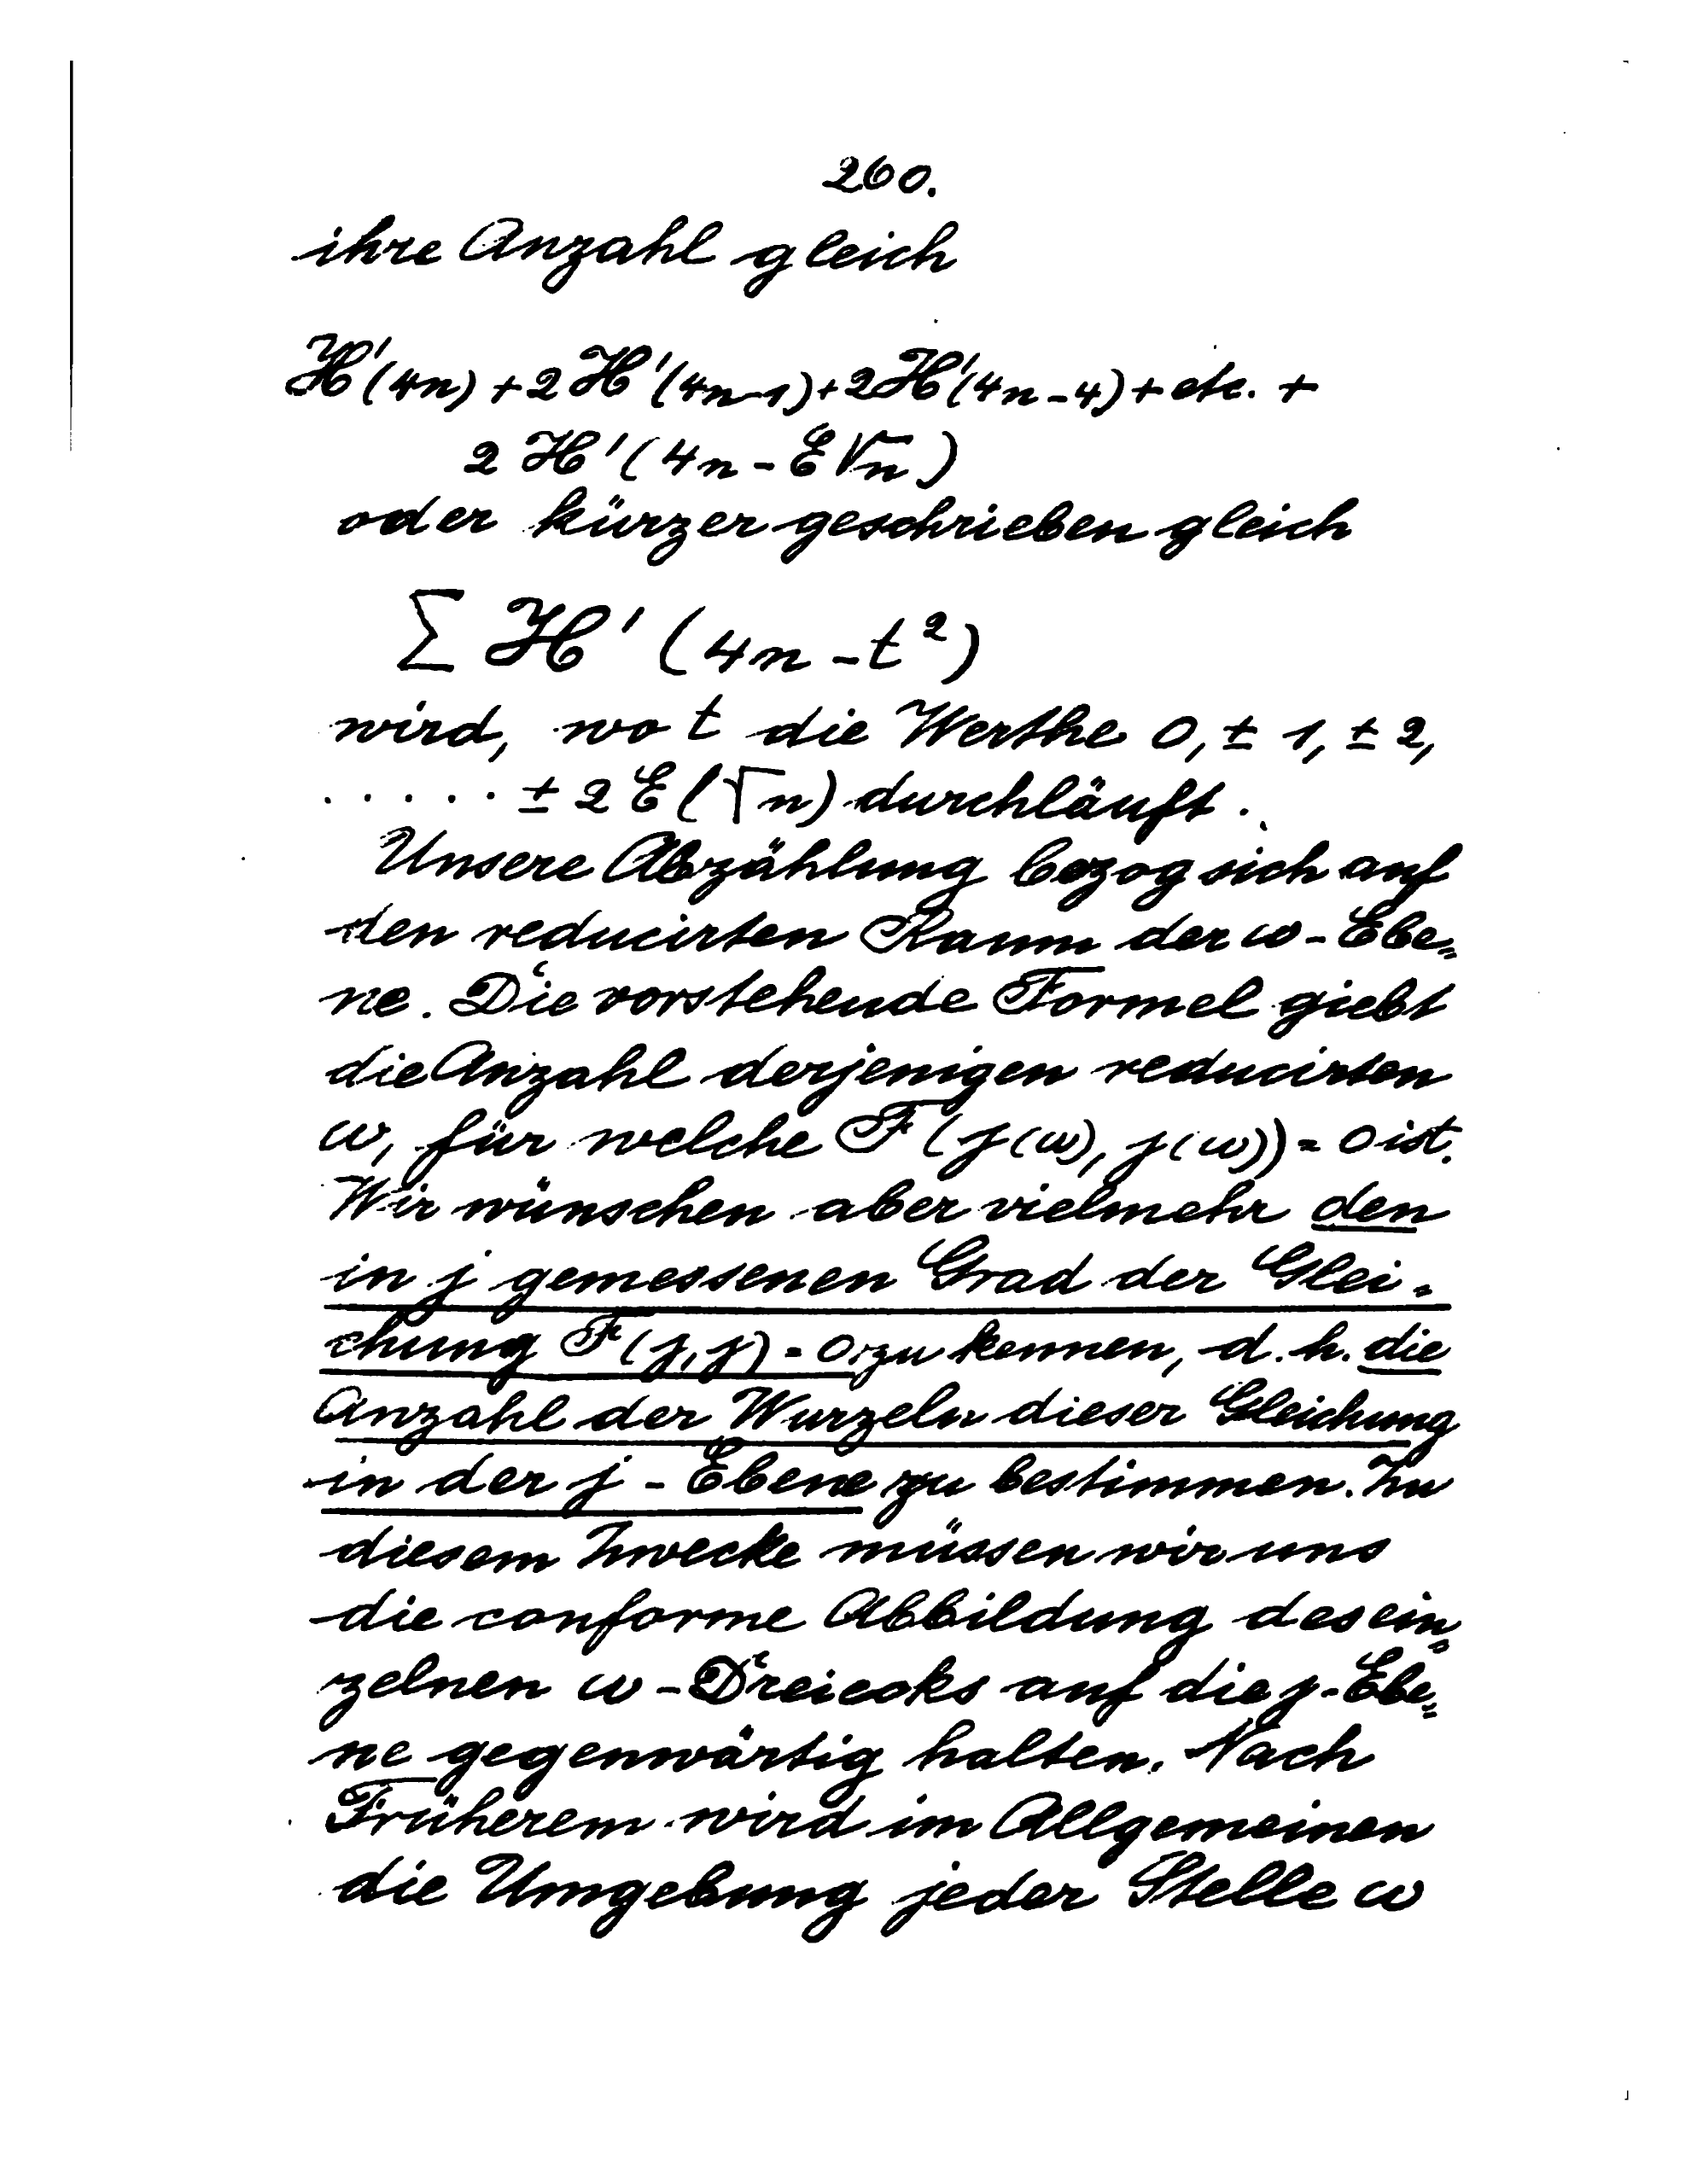 260.
ihre Anzahl gleich
H'(4n) + 2 H'(4n-1) + 2 H'(4n-4) + etc. +
2 H'(4n - E√n)
oder kürzer geschrieben gleich
∑ H'(4n - t²)
wird, wo t die Werthe 0, ± 1, ± 2,
. . . . . ± 2 E(√n) durchläuft.
Unsere Abzählung bezog sich auf
den reducirten Raum der ω-Ebe=
ne. Die vorstehende Formel giebt
die Anzahl derjenigen reducirten
ω, für welche F(j(ω), j(ω)) = 0 ist.
Wir wünschen aber vielmehr den
in j gemessenen Grad der Glei-
chung F(j, j) = 0 zu kennen, d. h. die
Anzahl der Wurzeln dieser Gleichung
in der j-Ebene zu bestimmen. Zu
diesem Zwecke müssen wir uns
die conforme Abbildung des ein=
zelnen ω-Dreiecks auf die j-Ebe=
ne gegenwärtig halten. Nach
Früherem wird im Allgemeinen
die Umgebung jeder Stelle ω